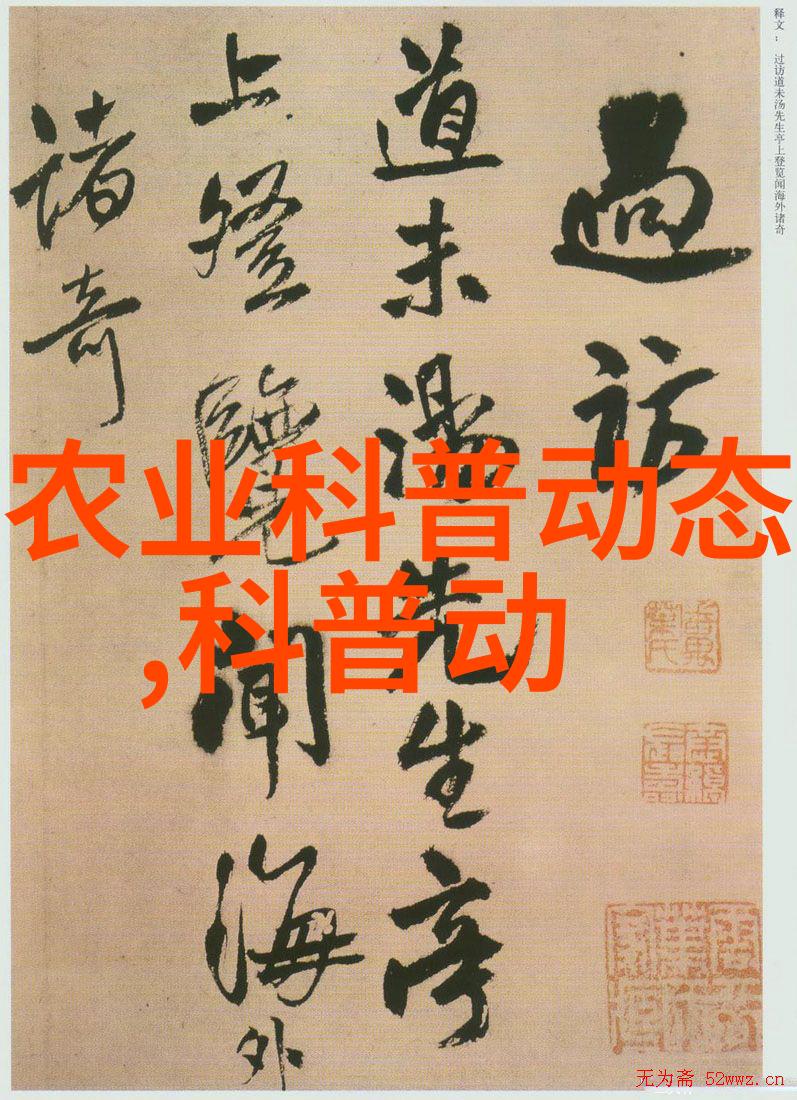 释文： 过访道未汤先生亭上登览闻海外诸奇
過訪
道未湯先生亭
上登覽聞海外
諸奇
农业科普动态
,科普动
无为斋 52wwz.cn